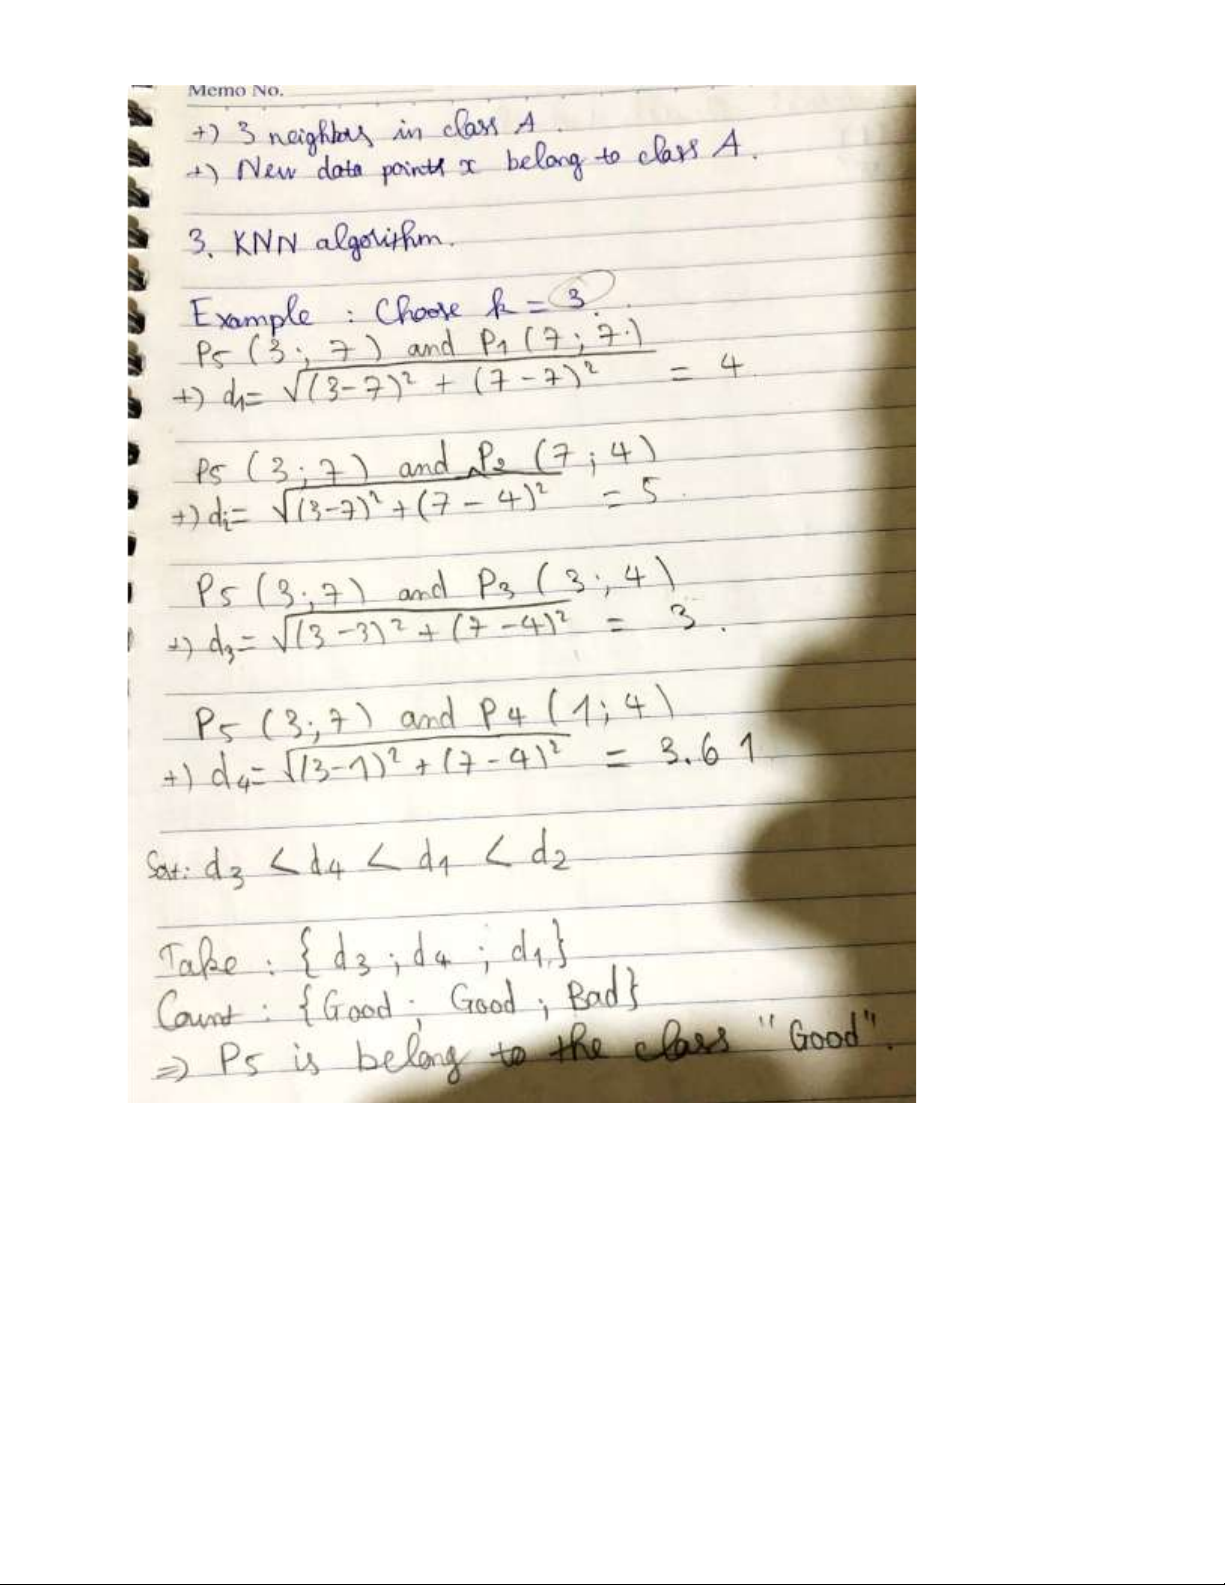 Memo No.
+) 3 neighbors in class A.
+) New data points x belong to class A.
3. KNN algorithm.
Example : Choose k = 3.
P5 (3; 7) and P1 (7; 7)
+) d1= √(3-7)² + (7-7)² = 4
P5 (3; 7) and P2 (7; 4)
+) d2= √(3-7)² + (7-4)² = 5.
P5 (3; 7) and P3 (3; 4)
+) d3= √(3-3)² + (7-4)² = 3.
P5 (3; 7) and P4 (1; 4)
+) d4= √(3-1)² + (7-4)² = 3.61
Sort: d3 < d4 < d1 < d2
Take : {d3 ; d4 ; d1}
Count : {Good ; Good ; Bad}
=> P5 is belong to the class "Good".